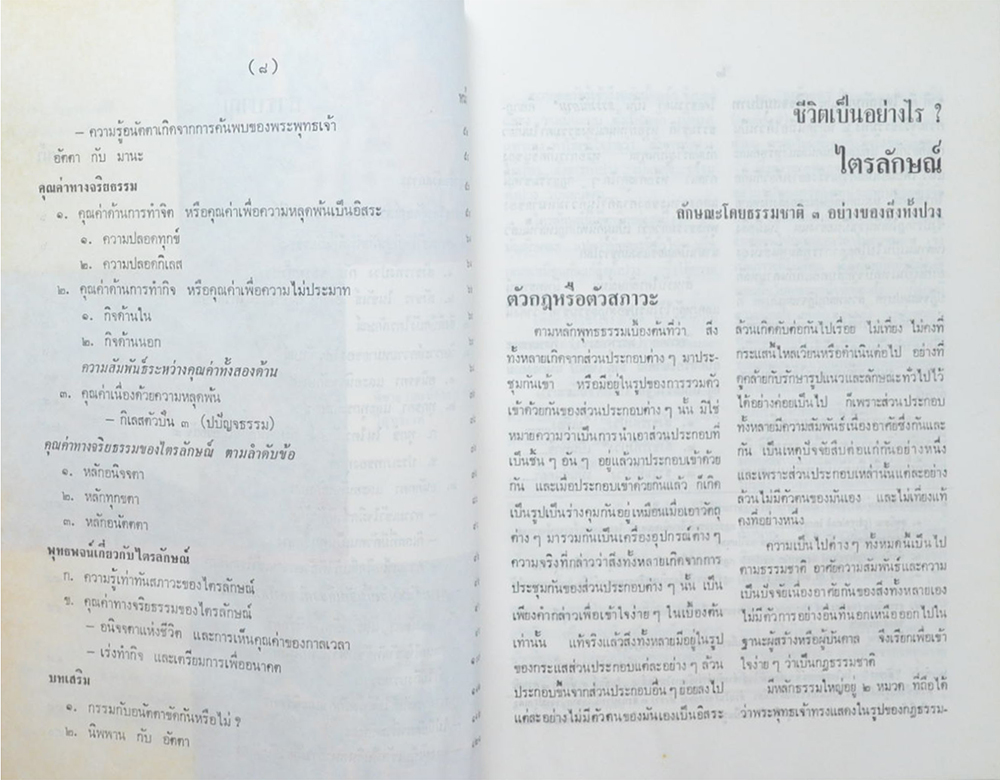 (๘)
- ความรู้อนัตตาเกิดจากการค้นพบของพระพุทธเจ้า
อัตตา กับ มานะ
คุณค่าทางจริยธรรม
๑. คุณค่าด้านการทำจิต หรือคุณค่าเพื่อความหลุดพ้นเป็นอิสระ
๑. ความปลอดทุกข์
๒. ความปลอดกิเลส
๒. คุณค่าด้านการทำกิจ หรือคุณค่าเพื่อความไม่ประมาท
๑. กิจด้านใน
๒. กิจด้านนอก
ความสัมพันธ์ระหว่างคุณค่าทั้งสองด้าน
๓. คุณค่าเนื่องด้วยความหลุดพ้น
- กิเลสตัวปั่น ๓ (ปปัญจธรรม)
คุณค่าทางจริยธรรมของไตรลักษณ์ ตามลำดับข้อ
๑. หลักอนิจจตา
๒. หลักทุกขตา
๓. หลักอนัตตตา
พุทธพจน์เกี่ยวกับไตรลักษณ์
ก. ความรู้เท่าทันสภาวะของไตรลักษณ์
ข. คุณค่าทางจริยธรรมของไตรลักษณ์
- อนิจจตาแห่งชีวิต และการเห็นคุณค่าของกาลเวลา
- เร่งทำกิจ และเตรียมการเพื่ออนาคต
บทเสริม
๑. กรรมกับอนัตตาขัดกันหรือไม่ ?
๒. นิพพาน กับ อัตตา
ชีวิตเป็นอย่างไร ?
ไตรลักษณ์
ลักษณะโดยธรรมชาติ ๓ อย่างของสิ่งทั้งปวง
ตัวกฎหรือตัวสภาวะ
ตามหลักพุทธธรรมเบื้องต้นที่ว่า สิ่ง
ทั้งหลายเกิดจากส่วนประกอบต่าง ๆ มาประ-
ชุมกันเข้า หรือมีอยู่ในรูปของการรวมตัว
เข้าด้วยกันของส่วนประกอบต่าง ๆ นั้น มิใช่
หมายความว่าเป็นการนำเอาส่วนประกอบที่
เป็นชิ้น ๆ อัน ๆ อยู่แล้วมาประกอบเข้าด้วย
กัน และเมื่อประกอบเข้าด้วยกันแล้ว ก็เกิด
เป็นรูปเป็นร่างคุมกันอยู่เหมือนเมื่อเอาวัตถุ
ต่าง ๆ มารวมกันเป็นเครื่องอุปกรณ์ต่าง ๆ
ความจริงที่กล่าวว่าสิ่งทั้งหลายเกิดจากการ
ประชุมกันของส่วนประกอบต่าง ๆ นั้น เป็น
เพียงคำกล่าวเพื่อเข้าใจง่าย ๆ ในเบื้องต้น
เท่านั้น แท้จริงแล้วสิ่งทั้งหลายมีอยู่ในรูป
ของกระแสส่วนประกอบแต่ละอย่าง ๆ ล้วน
ประกอบขึ้นจากส่วนประกอบอื่น ๆ ย่อยลงไป
แต่ละอย่างไม่มีตัวตนของมันเองเป็นอิสระ
ล้วนเกิดดับต่อกันไปเรื่อย ไม่เที่ยง ไม่คงที่
กระแสนี้ไหลเวียนหรือดำเนินต่อไป อย่างที่
ดูคล้ายกับรักษารูปแนวและลักษณะทั่วไปไว้
ได้อย่างค่อยเป็นไป ก็เพราะส่วนประกอบ
ทั้งหลายมีความสัมพันธ์เนื่องอาศัยซึ่งกันและ
กัน เป็นเหตุปัจจัยสืบต่อแก่กันอย่างหนึ่ง
และเพราะส่วนประกอบเหล่านั้นแต่ละอย่าง
ล้วนไม่มีตัวตนของมันเอง และไม่เที่ยงแท้
คงที่อย่างหนึ่ง
ความเป็นไปต่าง ๆ ทั้งหมดนี้เป็นไป
ตามธรรมชาติ อาศัยความสัมพันธ์และความ
เป็นปัจจัยเนื่องอาศัยกันของสิ่งทั้งหลายเอง
ไม่มีตัวการอย่างอื่นที่นอกเหนือออกไปใน
ฐานะผู้สร้างหรือผู้บันดาล จึงเรียกเพื่อเข้า
ใจง่าย ๆ ว่าเป็นกฎธรรมชาติ
มีหลักธรรมใหญ่อยู่ ๒ หมวด ที่ถือได้
ว่าพระพุทธเจ้าทรงแสดงในรูปของกฎธรรม-